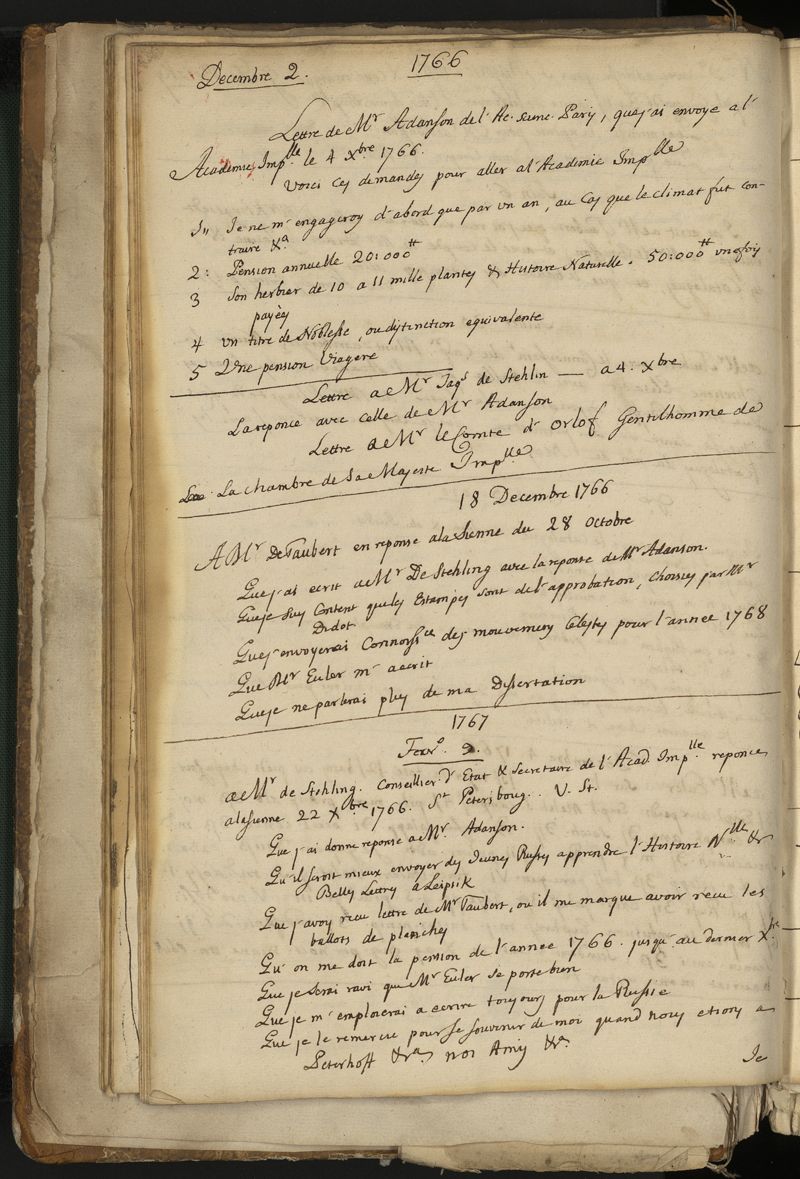 Decembre 2. 1766
Lettre de Mr Adanson de l'Ac. scienc. Paris, que j'ai envoye a l'
Academie Imp.lle le 4 Xbre 1766.
Voici ces demandes pour aller a l'Academie Implle
1,, Je ne m'engageroy d'abord que par un an, au cas que le climat fut con-
traire &a
2: Pension annuelle 20:000tt
3 Son herbier de 10 a 11 mille plantes & Histoire Naturelle. 50:000tt une fois
payées
4 un titre de Noblesse, ou distinction equivalente
5 Une pension Viagere
Lettre a Mr Jaqs de Stehlin — a 4. Xbre
La reponce avec celle de Mr Adanson
Lettre a Mr le Comte d'Orlof Gentilhomme de
La chambre de Sa Majeste Implle
18 Decembre 1766
A Mr De Taubert en reponse a la Sienne du 28 Octobre
Que j'ai ecrit a Mr De Stehling avec la reponse de Mr Adanson.
Que je suis Content que les Estampes sont de l'approbation, choisies par Mr
Didot
Que j'envoyerai Connoissce des mouvemens Celestes pour l'annee 1768
Que Mr Euler m'a ecrit
Que je ne parlerai plus de ma Dissertation
1767
Fevro. 2.
a Mr de Stehling. Conseiller d'Etat & Secretaire de l'Acad. Implle reponce
a la sienne 22 Xbre 1766. St Petersboug. V. St.
Que j'ai donne reponse a Mr. Adanson.
Qu'il seroit mieux envoyer des Jeunes Russes apprendre l'Histoire Nlle &
Belles Lettres a Leipsik
Que j'avoy recu lettre de Mr Taubert, ou il me marque avoir recu les
ballots de planches
Qu'on me doit la pension de l'annee 1766. jusqu'au dernier Xbre
Que je serai ravi que Mr Euler se porte bien
Que je m'emploierai a ecrire toujours pour la Russie
Que je le remercie pour se souvenir de moi quand nous etions a
Peterhoff &a nos Amis &a
Je